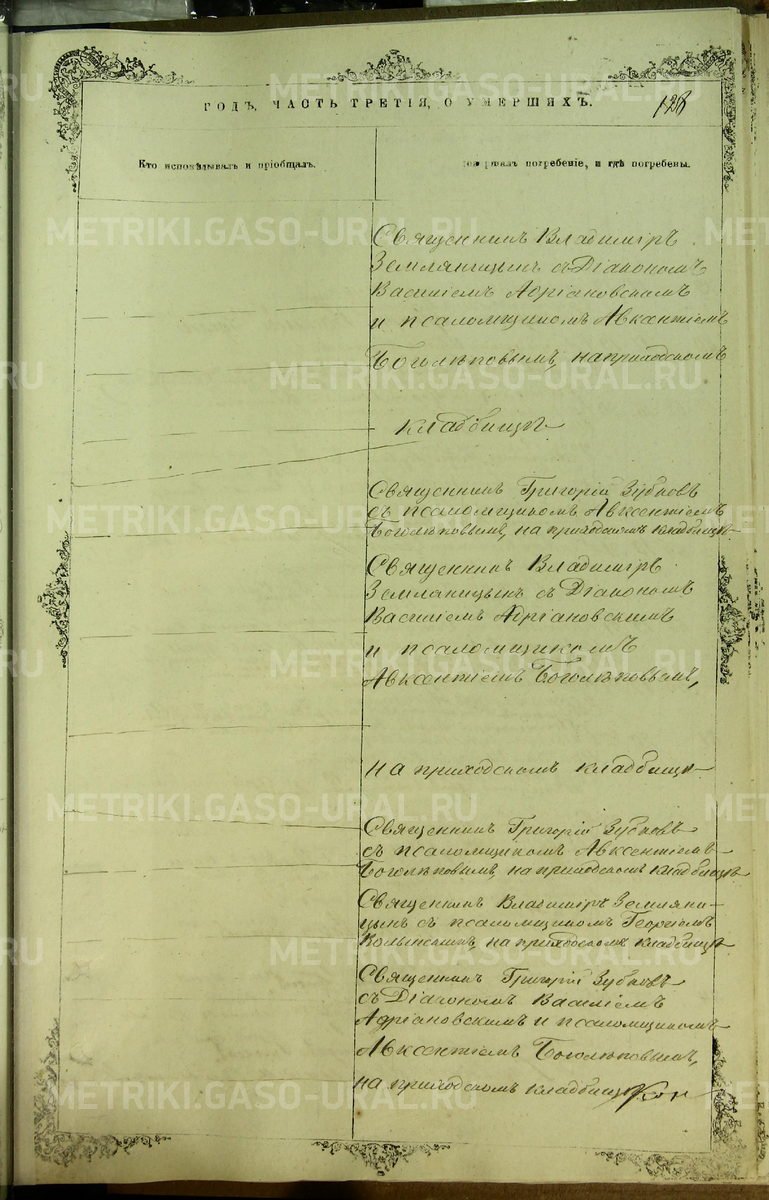 ГОДЪ, ЧАСТЬ ТРЕТІЯ, О УМЕРШИХЪ.
128
Кто исповѣдывалъ и пріобщалъ.
погребеніе, и гдѣ погребены.
Священникъ Владиміръ
Земляницынъ съ Діакономъ
Василіемъ Адріановскимъ
и псаломщикомъ Авксентіемъ
Боголѣповымъ, на приходскомъ
кладбищѣ
Священникъ Григорій Зубковъ
съ псаломщикомъ Авксентіемъ
Боголѣповымъ, на приходскомъ кладбищѣ
Священникъ Владиміръ
Земляницынъ съ Діакономъ
Василіемъ Адріановскимъ
и псаломщикомъ
Авксентіемъ Боголѣповымъ,
на приходскомъ кладбищѣ
Священникъ Григорій Зубковъ
съ псаломщикомъ Авксентіемъ
Боголѣповымъ, на приходскомъ кладбищѣ
Священникъ Владиміръ Земляни-
цынъ съ псаломщикомъ Георгіемъ
на приходскомъ кладбищѣ
Священникъ Григорій Зубковъ
съ Діакономъ Василіемъ
Адріановскимъ и псаломщикомъ
Авксентіемъ Боголѣповымъ,
на приходскомъ кладбищѣ
METRIKI.GASO-URAL.RU